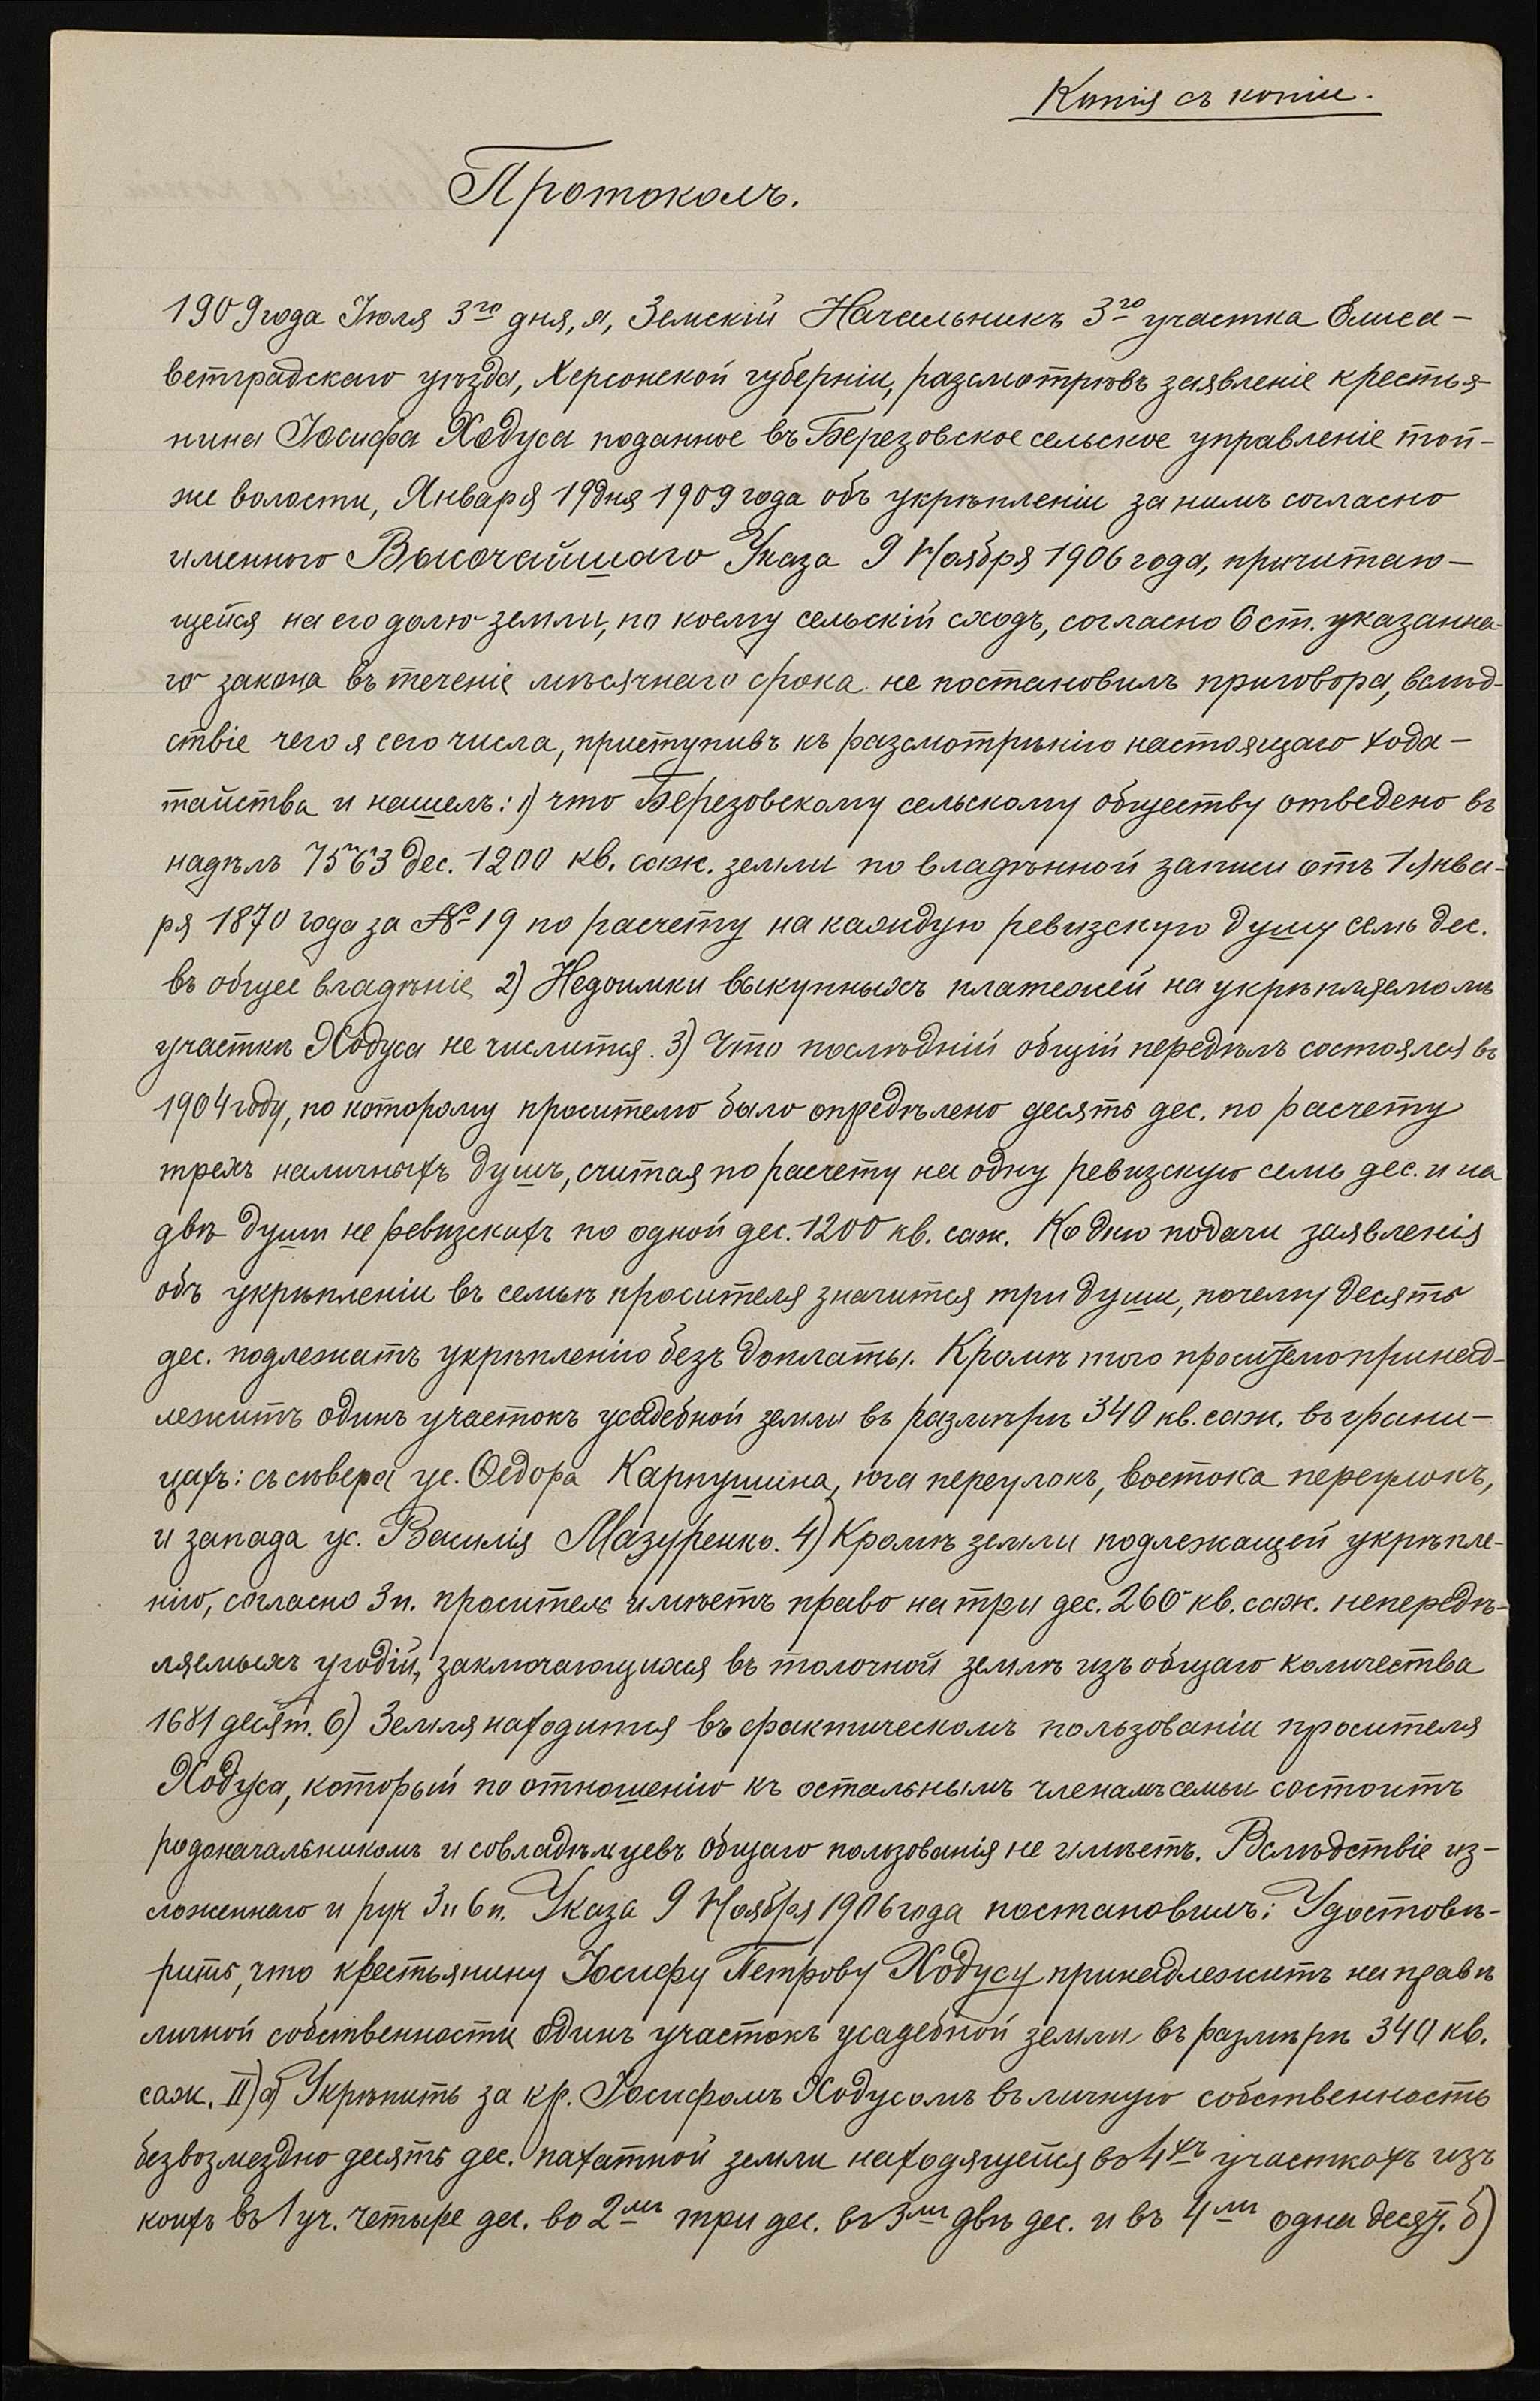 Копія съ копіи.
Протоколъ.
1909 года Іюля 3го дня, я, Земскій Начальникъ 3го участка Елиса-
ветградскаго уѣзда, Херсонской губерніи, разсмотрѣвъ заявленіе крестья-
нина Іосифа Ходуса поданное въ Березовское сельское управленіе той-
же волости, Января 19 дня 1909 года объ укрѣпленіи за нимъ согласно
именного Высочайшаго Указа 9 Ноября 1906 года, причитаю-
щейся на его долю земли, по коему сельскій сходъ, согласно 6 ст. указанна-
го закона въ теченіе мѣсячнаго срока не постановилъ приговора, вслѣд-
ствіе чего я сего числа, приступивъ къ разсмотрѣнію настоящаго хода-
тайства и нашелъ: 1) что Березовскому сельскому обществу отведено въ
надѣлъ 7563 дес. 1200 кв. саж. земли по владѣнной записи отъ 1 Янва-
ря 1870 года за № 19 по расчету на каждую ревизскую душу семь дес.
въ общее владѣніе 2) Недоимки выкупныхъ платежей на укрѣпляемомъ
участкѣ Ходуса не числится. 3) Что послѣдній общій передѣлъ состоялся въ
1904 году, по которому просителю было опредѣлено десять дес. по расчету
трехъ наличныхъ душъ, считая по расчету на одну ревизскую семь дес. и на
двѣ души не ревизскихъ по одной дес. 1200 кв. саж. Ко дню подачи заявленія
объ укрѣпленіи въ семьѣ просителя значится три души, почему десять
дес. подлежатъ укрѣпленію безъ доплаты. Кромѣ того просителю принад-
лежитъ одинъ участокъ усадебной земли въ размѣрѣ 340 кв. саж. въ грани-
цахъ: съ сѣвера ус. Федора Карпушина, юга переулокъ, востока переулокъ,
и запада ус. Василія Мазуренко. 4) Кромѣ земли подлежащей укрѣпле-
нію, согласно 3 п. проситель имѣетъ право на три дес. 260 кв. саж. непередѣ-
ляемыхъ угодій, заключающихся въ толочной землѣ изъ общаго количества
1681 десят. 6) Земля находится въ фактическомъ пользованіи просителя
Ходуса, который по отношенію къ остальнымъ членамъ семьи состоитъ
родоначальникомъ и совладѣльцевъ общаго пользованія не имѣетъ. Вслѣдствіе из-
ложеннаго и рук 3 и 6 п. Указа 9 Ноября 1906 года постановилъ: Удостовѣ-
рить, что крестьянину Іосифу Петрову Ходусу принадлежитъ на правѣ
личной собственности одинъ участокъ усадебной земли въ размѣрѣ 340 кв.
саж. II) а) Укрѣпить за кр. Іосифомъ Ходусомъ въ личную собственность
безвозмездно десять дес. пахатной земли находящейся во 4хъ участкахъ изъ
коихъ въ 1 уч. четыре дес. во 2мъ три дес. въ 3мъ двѣ дес. и въ 4мъ одна десят. б)